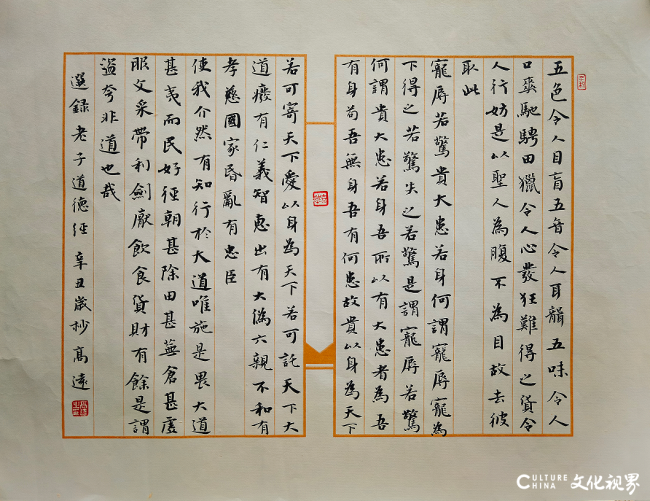 五色令人目盲五音令人耳聾五味令人
口爽馳騁田獵令人心發狂難得之貨令
人行妨是以聖人為腹不為目故去彼
取此
寵辱若驚貴大患若身何謂寵辱寵為
下得之若驚失之若驚是謂寵辱若驚
何謂貴大患若身吾所以有大患者為吾
有身苟吾無身吾有何患故貴以身為天下
若可寄天下愛以身為天下若可託天下大
道廢有仁義智惠出有大偽六親不和有
孝慈國家昏亂有忠臣
使我介然有知行於大道唯施是畏大道
甚夷而民好徑朝甚除田甚蕪倉甚虛
服文采帶利劍厭飲食貨財有餘是謂
盜夸非道也哉
選錄老子道德經 辛丑歲抄高遠
CULTURE CHINA 文化视界